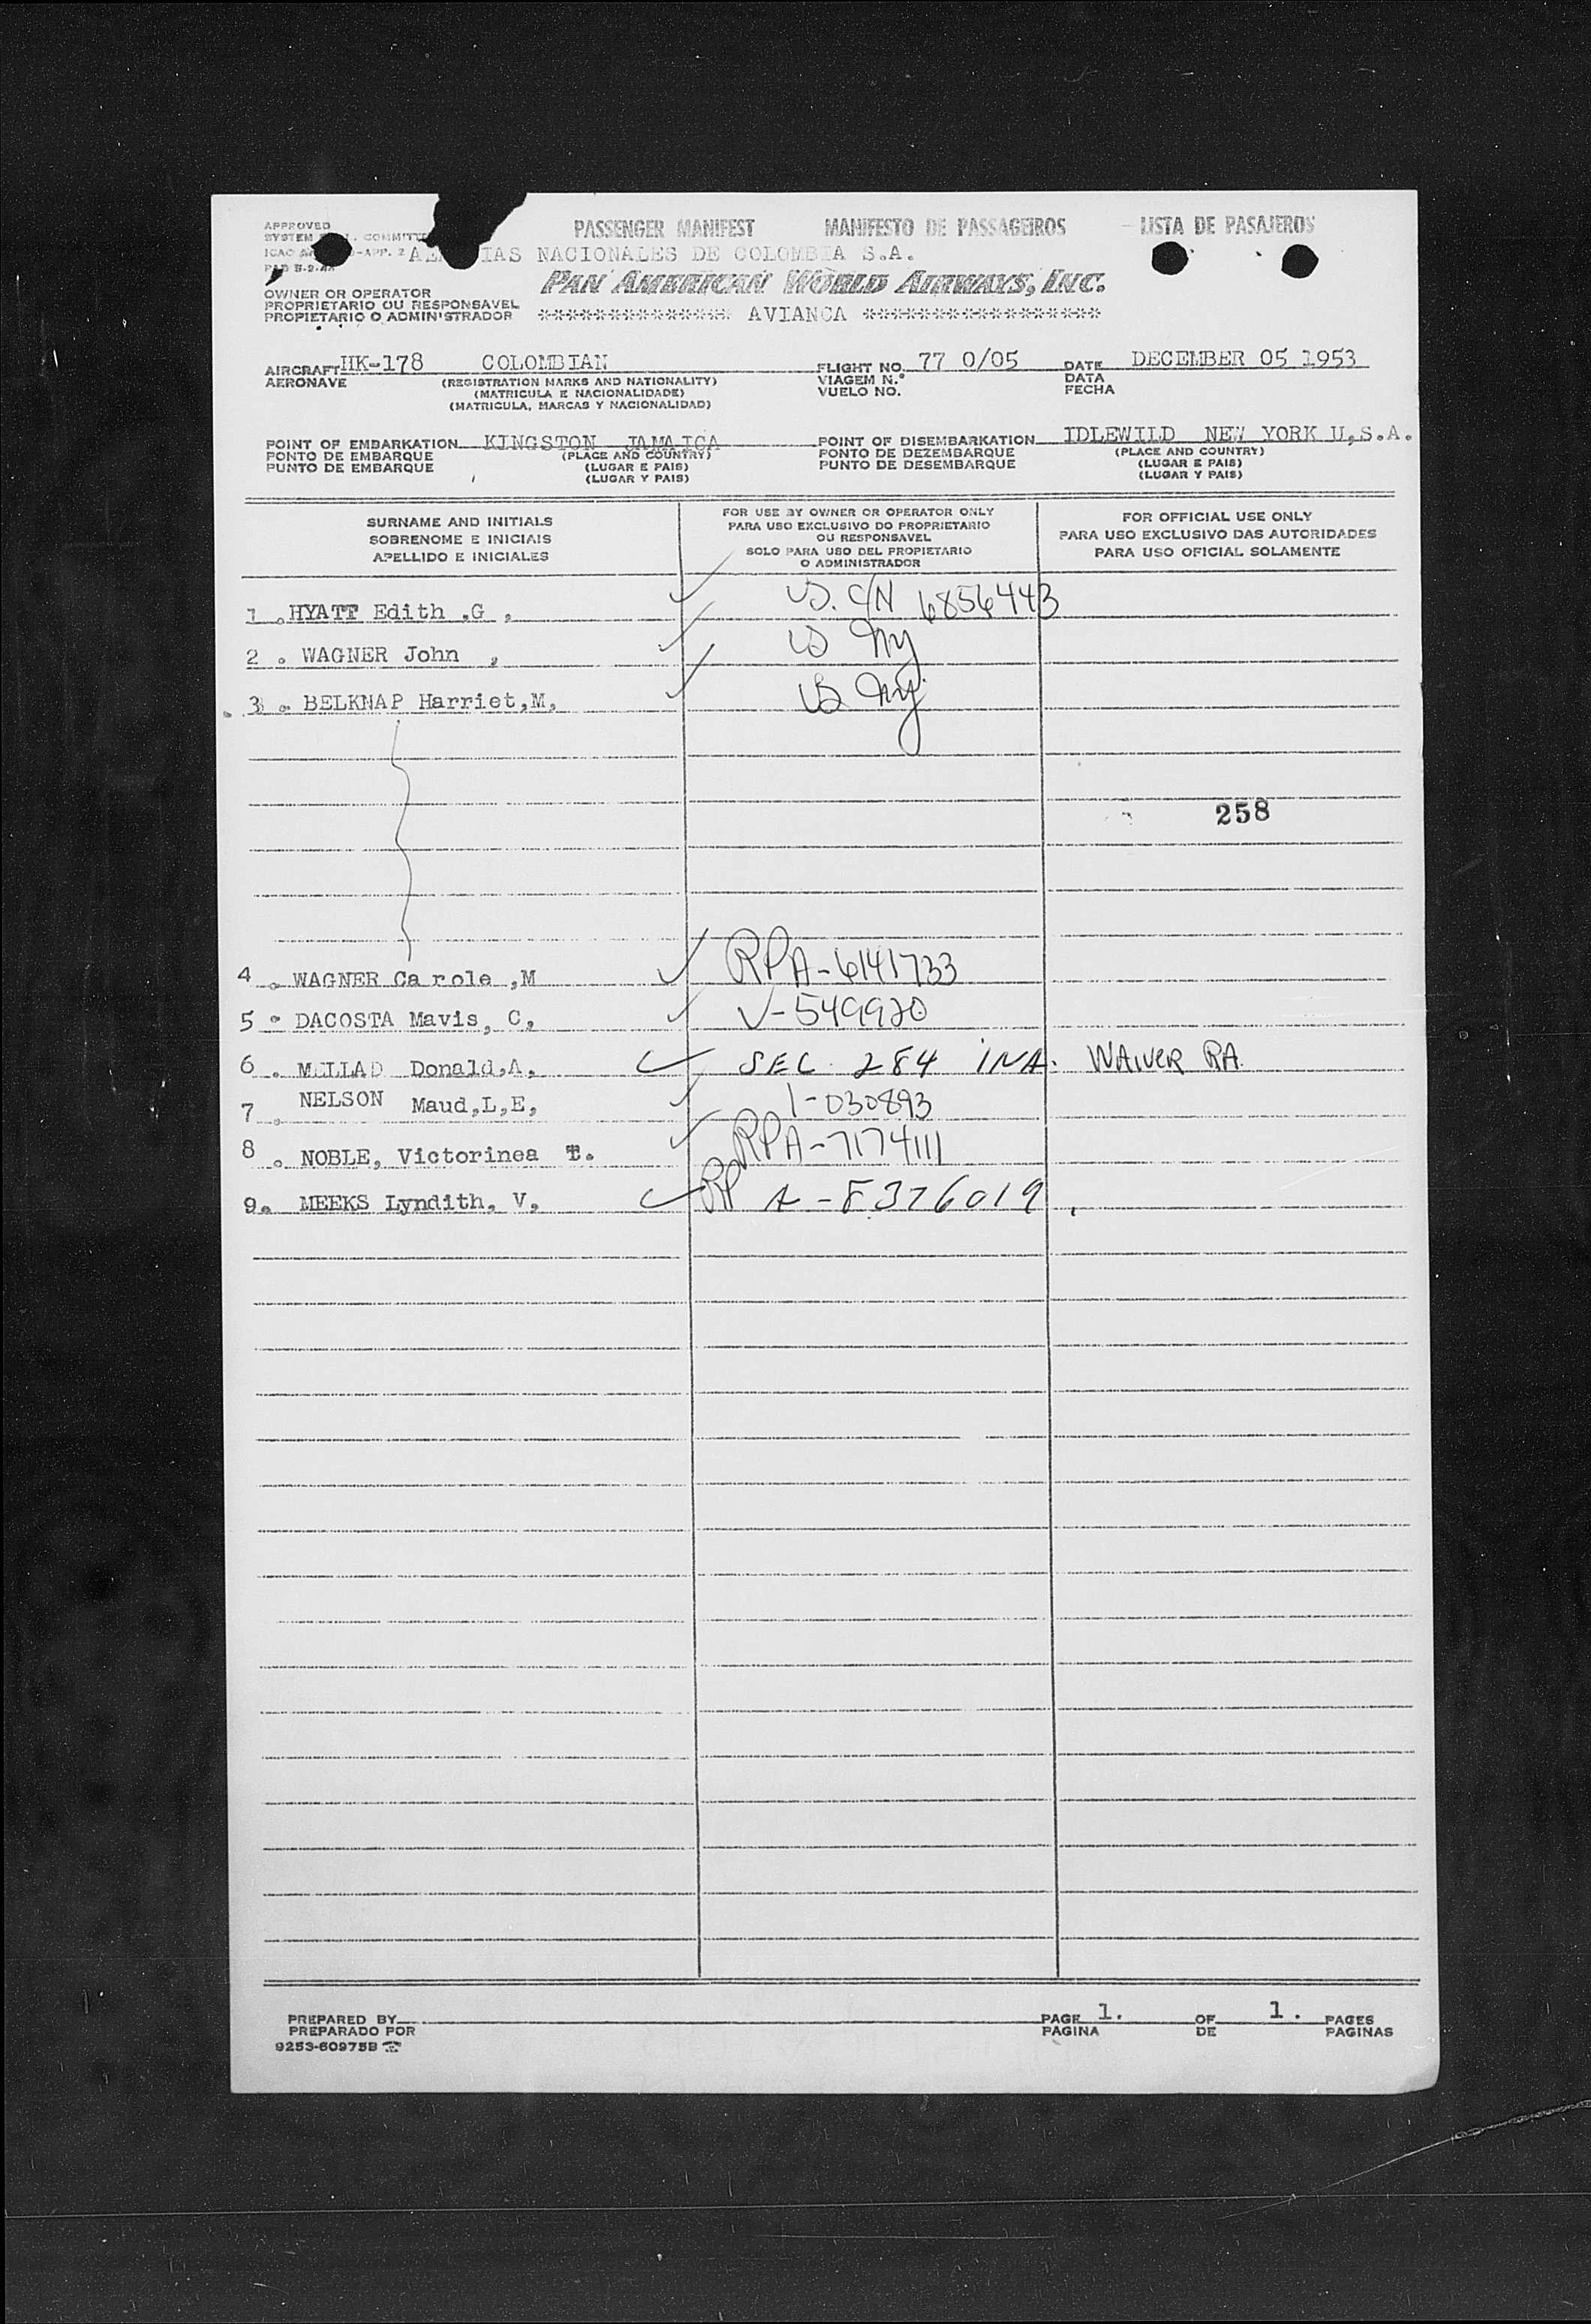 APPROVED PASSENGER MANIFEST MANIFESTO DE PASSAGEIROS LISTA DE PASAJEROS
SYSTEM
NACIONALES DE COLOMBIA S.A.
PAN AMERICAN WORLD AIRWAYS, INC.
OWNER OR OPERATOR
PROPRIETARIO OU RESPONSAVEL
PROPIETARIO O ADMINISTRADOR ************** AVIANCA *****************
AIRCRAFT HK-178 COLOMBIAN FLIGHT NO. 77 0/05 DATE DECEMBER 05 1953
AERONAVE (REGISTRATION MARKS AND NATIONALITY) VIAGEM N.º DATA
(MATRICULA E NACIONALIDADE) VUELO NO. FECHA
(MATRICULA, MARCAS Y NACIONALIDAD)
POINT OF EMBARKATION KINGSTON JAMAICA POINT OF DISEMBARKATION IDLEWILD NEW YORK U.S.A.
PONTO DE EMBARQUE (PLACE AND COUNTRY) PONTO DE DEZEMBARQUE (PLACE AND COUNTRY)
PUNTO DE EMBARQUE (LUGAR E PAIS) PUNTO DE DESEMBARQUE (LUGAR E PAIS)
(LUGAR Y PAIS) (LUGAR Y PAIS)
SURNAME AND INITIALS
SOBRENOME E INICIAIS
APELLIDO E INICIALES
FOR USE BY OWNER OR OPERATOR ONLY
PARA USO EXCLUSIVO DO PROPRIETARIO
OU RESPONSAVEL
SOLO PARA USO DEL PROPIETARIO
O ADMINISTRADOR
FOR OFFICIAL USE ONLY
PARA USO EXCLUSIVO DAS AUTORIDADES
PARA USO OFICIAL SOLAMENTE
1 . HYATT Edith ,G , US. C/N 6856443
2 . WAGNER John , US NY
3 . BELKNAP Harriet,M, US NY
258
4 . WAGNER Carole ,M RPA-6141733
5 . DACOSTA Mavis, C, V-549920
6 . Donald,A, SEC. 284 INA. WAIVER RA.
7 . NELSON Maud,L,E, I-030893
8 . NOBLE, Victorinea T. RPA-7174111
9. MEEKS Lyndith, V, RP A-8376019
PREPARED BY PAGE 1. OF 1. PAGES
PREPARADO POR PAGINA DE PAGINAS
9253-60975B